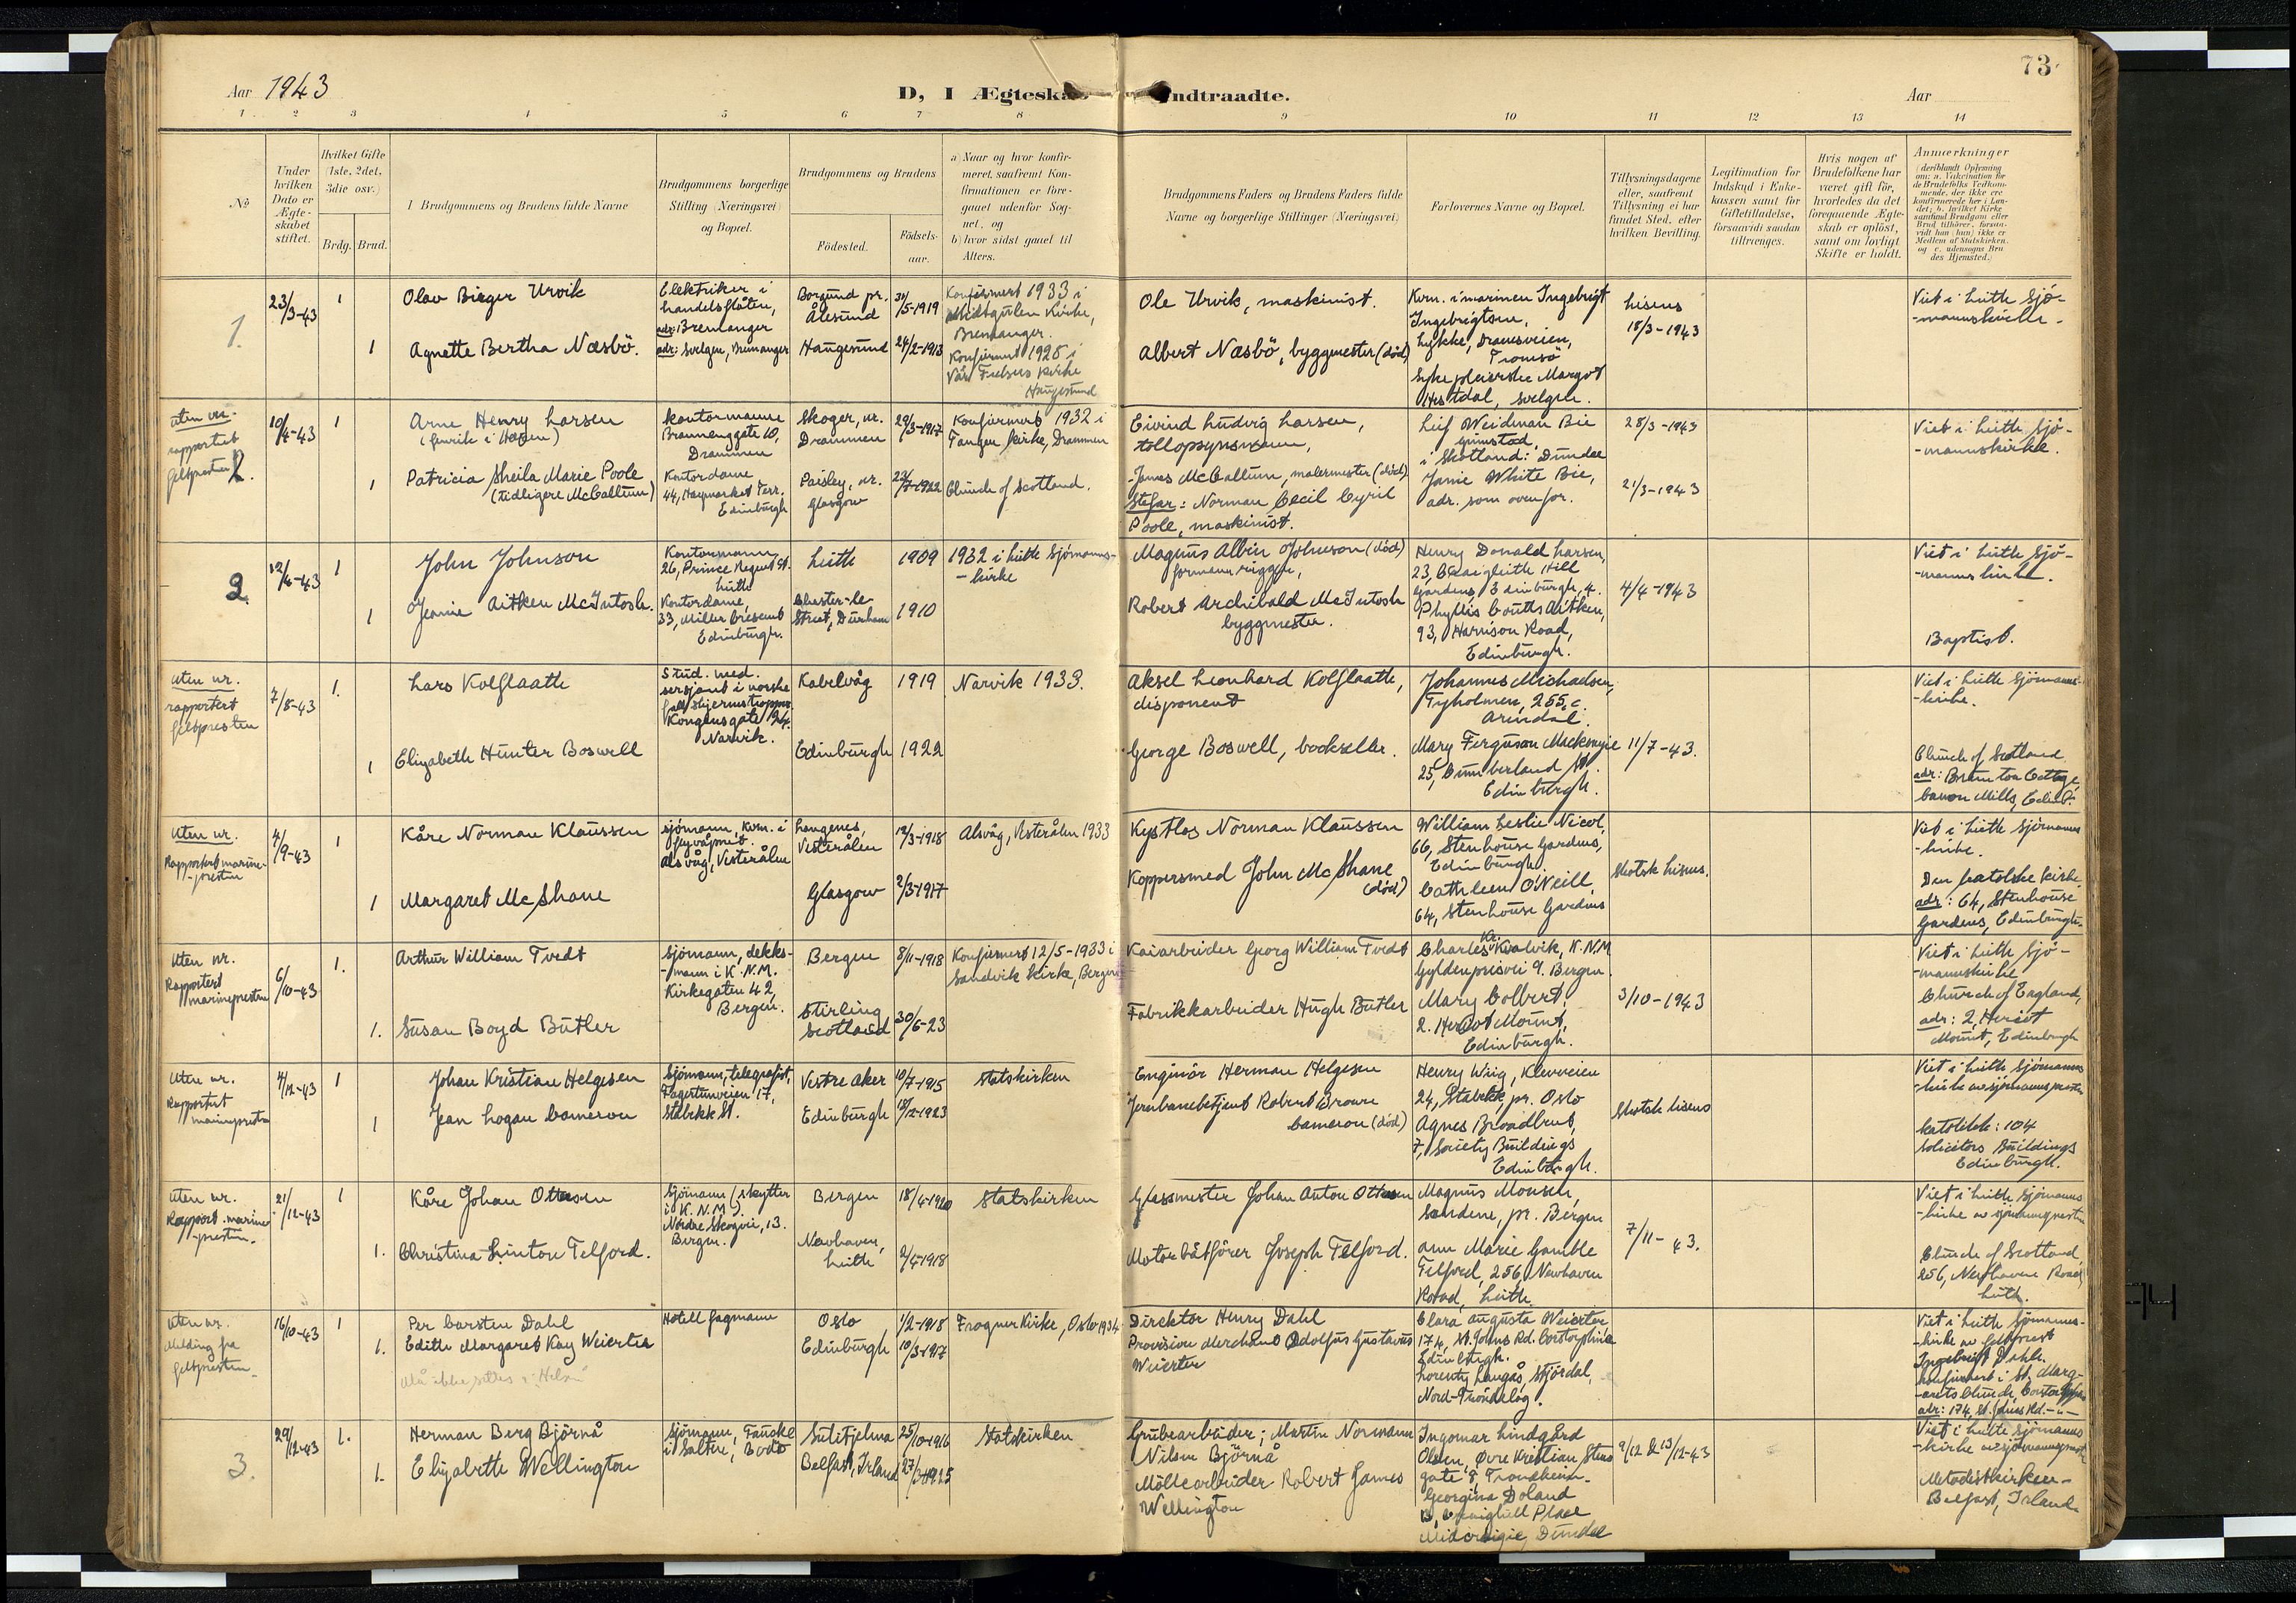 73.
Aar 1943
D, I Ægteska
Indtraadte.
Aar
1 2 3 4 5 6 7 8 9 10 11 12 13 14
№
Under hvilken Dato er Ægte-skabet stiftet.
Hvilket Gifte (1ste, 2det, 3die osv.)
Brdg. Brud.
Brudgommens og Brudens fulde Navne
Brudgommens borgerlige Stilling (Næringsvei) og Bopæl.
Brudgommens og Brudens
Födested.
Födsels-aar.
a) Naar og hvor konfir-meret, saafremt Kon-firmationen er fore-gaaet udenfor Sog-net, og
b) hvor sidst gaaet til Alters.
Brudgommens Faders og Brudens Faders fulde Navne og borgerlige Stillinger (Næringsvei)
Forlovernes Navne og Bopæl.
Tillysningsdagene eller, saafremt Tillysning ei har fundet Sted, efter hvilken Bevilling.
Legitimation for Indskud i Enke-kassen samt for Giftetilladelse, forsaavidt saadan tiltrænges.
Hvis nogen af Brudefolkene har været gift för, hvorledes da det foregaaende Ægte-skab er oplöst, samt om lovligt Skifte er holdt.
Anmærkninger
(deriblandt Oplysning om: a. Vaksination for de Brudefolks Vedkom-mende, der ikke ere konfirmerede her i Lan-det; b. hvilket Kirke-samfund Brudgom eller Brud tilhörer, forsaa-vidt han (hun) ikke er Medlem af Statskirken, og c. udensogns Bru-des Hjemsted.)
1.
23/3-43
1
Olav Birger Urvik
Elektriker i
handelsflåten,
adr: Bremanger
Borgund pr.
Ålesund
31/5-1919
Konfirmert 1933 i
Midtgulen Kirke,
Bremanger.
Ole Urvik, maskinist.
Kvm. i marinen Ingebrigt
Ingebrigtsen,
Lykke, Dramsveien,
Tromsö
Lisens
18/3-1943
Viet i Leith Sjö-
-mannskirke.
1
Agnette Bertha Næsbö.
adr: Svelgen, Bremanger
Haugesund
24/2-1913
Konfirmert 1928 i
Vår Frelsers Kirke
Haugesund
Albert Næsbö, byggmester (död)
Sykepleierske Margot
Hestdal, Svelgen.
Uten nr.
rapportert
feltpresten
2.
10/4-43
1
Arne Henry Larsen
(Henrik i Haagen)
Kontormann
Drammen
Skoger, nr.
Drammen
29/3-1917
Konfirmert 1932 i
Tangen Kirke, Drammen
Eivind Ludvig Larsen,
tollopsynsmann,
Leif Weidman Bie
Grimstad,
i Skotland: Dundee
28/3-1943
Viet i Leith Sjö-
-mannskirke.
1
Patricia Sheila Marie Poole
(tidligere McCallum)
Kontordame
44, Haymarket Terr.
Edinburgh
Paisley, nr.
Glasgow
22/7-1922
Church of Scotland.
James McCallum, malermester (död)
Stefar: Norman Cecil Cyril
Poole, maskinist.
Janie White Bie,
adr. som ovenfor.
21/3-1943
2
12/4-43
1
John Johnson
Kontormann
26, Prince Regent St.
Leith
Leith
1909
1932 i Leith Sjömanns-
-kirke
Magnus Albin Johnson (död)
formann rigger,
Henry Donald Larsen,
23, Craigleith Hill
Gardens, Edinburgh, 4.
4/4-1943
Viet i Leith Sjö-
-mannskirke.
1
Jeanie Aitken McIntosh.
Kontordame,
33, Miller Crescent
Edinburgh.
Chester-le-
Street, Durham
1910
Robert Archibald McIntosh
byggmester.
Phyllis Coutts Aitken,
93, Harrison Road,
Edinburgh.
Baptist.
Uten nr.
rapportert
feltpresten
7/8-43
1.
Lars Kolflaath
Stud. med.
sersjant i norske
fallskjermstropper
Kongensgate 24.
Narvik.
Kabelvåg
1919
Narvik 1933.
Aksel Leonhard Kolflaath,
disponent
Johannes Michaelsen,
Tyholmen, 255, c.
Arendal.
Viet i Leith Sjömanns-
-kirke.
1
Elizabeth Hunter Boswell
Edinburgh
1922
George Boswell, bookseller.
Mary Ferguson Mackenzie
25, Cumberland St.
Edinburgh.
11/7-43.
Church of Scotland
adr: Cottage,
Canon Mills, Edinb.
Uten nr.
Rapportert marine-
-presten
4/9-43
1
Kåre Norman Klaussen
sjömann, kvm. i
flyvåpnet.
Alsvåg, Vesterålen
Langenes,
Vesterålen
12/3-1918
Alsvåg, Vesterålen 1933
Kystlos Norman Klaussen
William Leslie Nicol,
66, Stenhouse Gardens,
Edinburgh.
Skotsk Lisens.
Viet i Leith Sjömanns
-kirke.
1
Margaret McShane
Glasgow
2/3-1917
Koppersmed John McShane
(död)
Cathleen O'Neill,
64, Stenhouse Gardens
Den katolske kirke.
adr: 64, Stenhouse
Gardens, Edinburgh.
Uten nr.
Rapportert
marinepresten
6/10-43
1.
Arthur William Tvedt
Sjömann, dekks-
-mann i K.N.M.
Kirkegaten 42,
Bergen.
Bergen
8/11-1918
Konfirmert 12/5-1933 i
Sandvik Kirke, Bergen
Kaiarbeider Georg William Tvedt
Charles Kr. Kvalvik, K.N.M
Gyldenprisvei 9. Bergen.
3/10-1943
Viet i Leith Sjö-
-mannskirke
1.
Susan Boyd Butler
Stirling
Scotland
30/6-23
Fabrikkarbeider Hugh Butler
Mary Colbert,
2. Heriot Mount,
Edinburgh.
Church of England,
adr: 2, Heriot
Mount, Edinburgh
Uten nr.
Rapportert
marinepresten
4/12-43
1
Johan Kristian Helgesen
Sjömann, telegrafist,
Fagertunveien 17,
Stabekk St.
Vestre Aker
10/7-1915
Statskirken
Enginör Herman Helgesen
Henry Wiig, Kleivveien
24, Stabekk, pr. Oslo
Skotsk Lisens
Viet i Leith Sjömanns
-kirke av sjömannspresten
1
Jean Logan Cameron
Edinburgh
18/12-1923
Jernbanebetjent Robert Brown
Cameron (död)
Agnes Broadbent,
7, Society Buildings
Edinburgh.
katolikk: 104
Solicitors Buildings
Edinburgh.
Uten nr.
Rapport. marine-
-presten.
21/12-43
1
Kåre Johan Ottesen
Sjömann (skytter
i K.N.M.)
Nordre Skogvei, 13.
Bergen.
Bergen
18/4-1920
Statskirken
Glassmester Johan Anton Ottesen
Magnus Monsen,
Sandene, pr. Bergen
7/11-43.
Viet i Leith Sjömanns
-kirke av sjömannspresten
1.
Christina Linton Telford.
Newhaven,
Leith
2/4-1918
Motorbåtförer Joseph Telford.
Ann Marie Gamble
Telford, 256, Newhaven
Road, Leith.
Church of Scotland,
256, Newhaven Road
Leith.
Uten nr.
Melding fra
feltpresten
16/10-43
1
Per Carsten Dahl
Hotell fagmann
Oslo
1/2-1918
Frogner Kirke, Oslo 1934
Direktor Henry Dahl
Clara Augusta Weierter
174, St. Johns Rd. Corstorphine
Edinburgh.
Viet i Leith Sjömanns-
-kirke av feltprest
Ingebrigt Dahle.
1.
Edith Margaret Kay Weierter
Edinburgh
10/3-1917
Provision Merchant Adolfus Gustavus
Weierter
Lorentz Haugås, Stjördal,
Nord-Tröndelag.
Konfirmert i St. Marg-
-arets Church, Corstorphine
adr: 174, St. Johns Rd. -"-
3.
29/12-43
1.
Herman Berg Björnå
Sjömann, Fauske
i Salten, Bodö
Sulitjelma
25/10-1916
Statskirken
Grubearbeider; Martin Normann
Nilsen Björnå
Ingemar Lindgård
Olsen, Övre Kristian Stens
gate 8, Trondheim.
9/12 & 13/12-43
Viet i Leith Sjömanns
-kirke av sjömannsprest
1.
Elizabeth Wellington
Belfast, Irland
27/3-1925
Möllearbeider Robert James
Wellington
Georgina Doland
13, Craighill Place
Midcraigie, Dundee
Metodistkirken-
Belfast, Irland.